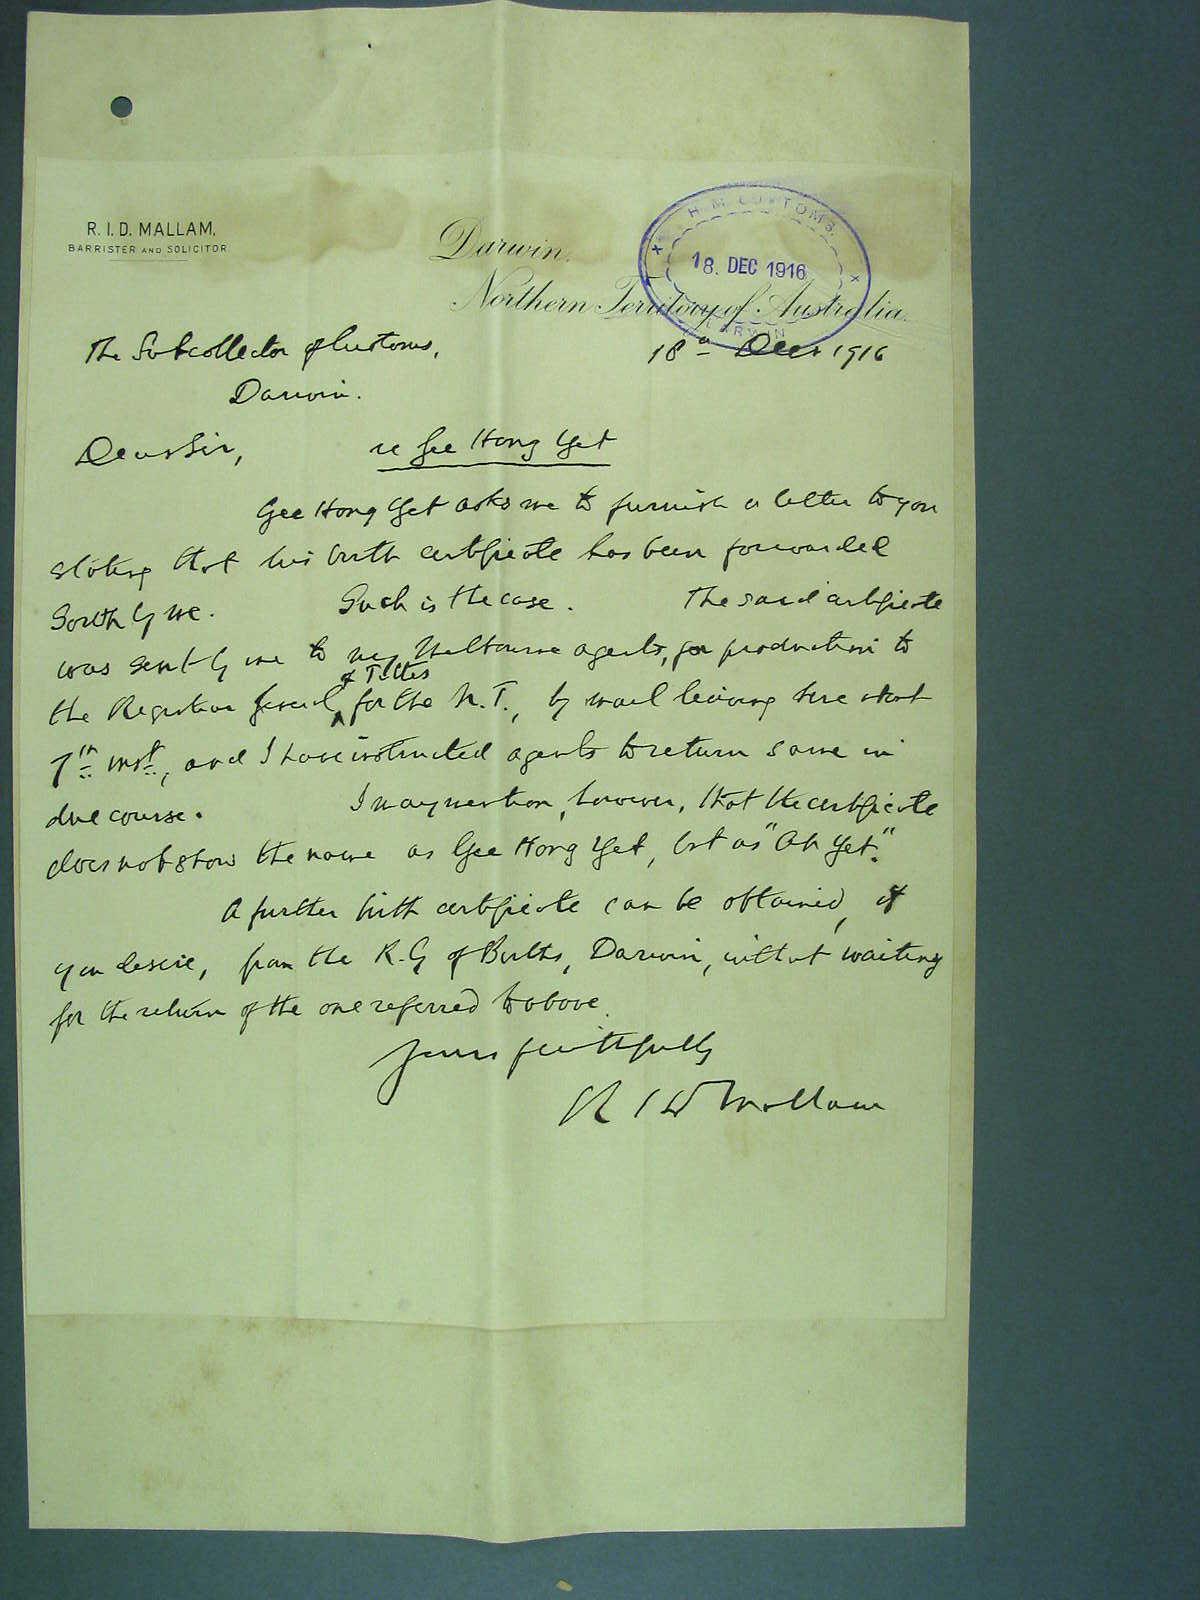 R. I. D. MALLAM,
BARRISTER AND SOLICITOR
Darwin.
Northern Territory of Australia.
H. M. CUSTOMS.
18. DEC 1916
DARWIN
18th Decr 1916
The Subcollector of Customs,
Darwin.
Dear Sir,
re Gee Hong Yet
Gee Hong Yet asks me to furnish a letter to you
stating that his birth certificate has been forwarded
South by me. Such is the case. The said certificate
was sent by me to my Melbourne agents, for production to
of Titles
the Registrar General, for the N.T., by mail leaving here about
7th inst, and I have instructed agents to return same in
due course. I may mention, however, that the certificate
does not show the name as Gee Hong Yet, but as "Ah Yet".
A further birth certificate can be obtained, if
you desire, from the R.G of Births, Darwin, without waiting
for the return of the one referred to above.
Yours faithfully
R I D Mallam